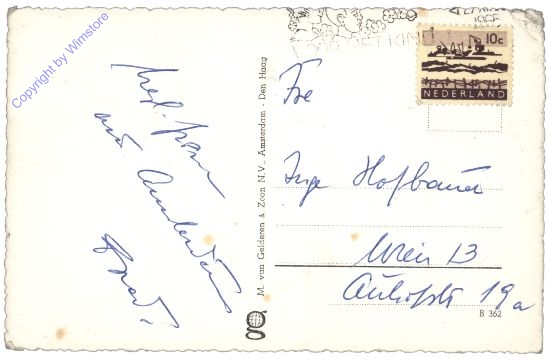 Copyright by Wimstore
1965
VOOR HET KIND
10c
NEDERLAND
aus Amsterdam
M. van Gelderen & Zoon N.V., Amsterdam - Den Haag
Inge Hofbauer
Wien 13
19a
B 362